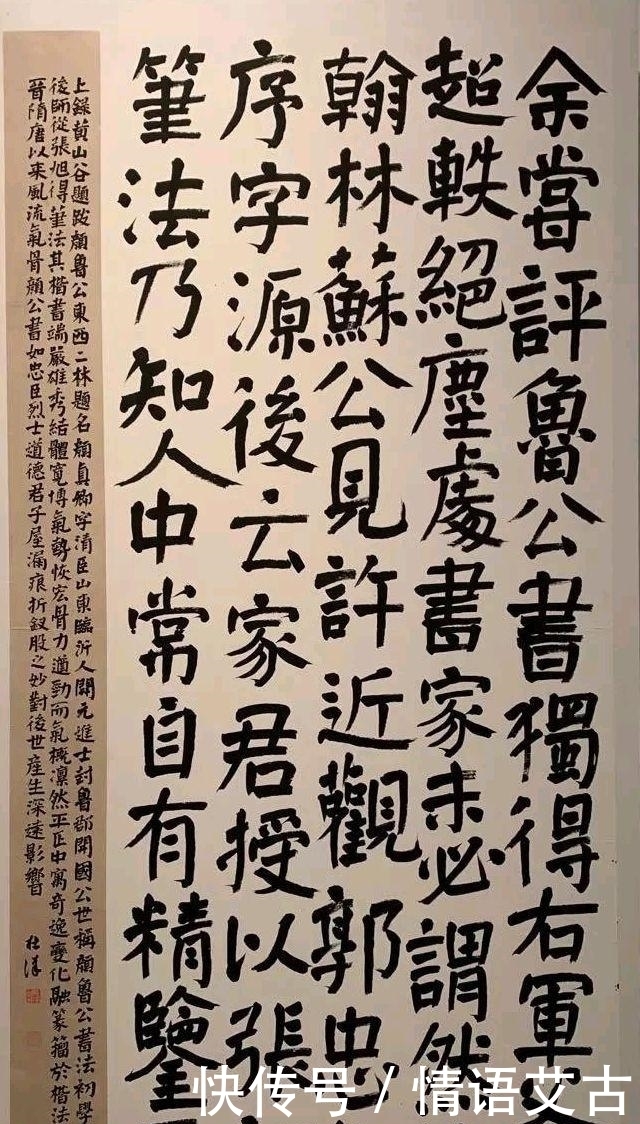 余嘗評魯公書獨得右軍
超軼絕塵處書家未必謂然
翰林蘇公見許近觀郭忠
序字源後云家君授以張
筆法乃知人中常自有精鑒
上錄黃山谷題跋顏魯公東西二林題名顏真卿字清臣山東臨沂人開元進士封魯郡開國公世稱顏魯公書法初學
後師從張旭得筆法其楷書端嚴雄秀結體寬博氣勢恢宏骨力遒勁而氣概凜然平正中寓奇逸變化融篆籀於楷法
晉隋唐以來風流氣骨顏公書如忠臣烈士道德君子屋漏痕折釵股之妙對後世產生深遠影響
快传号 / 情语艾古